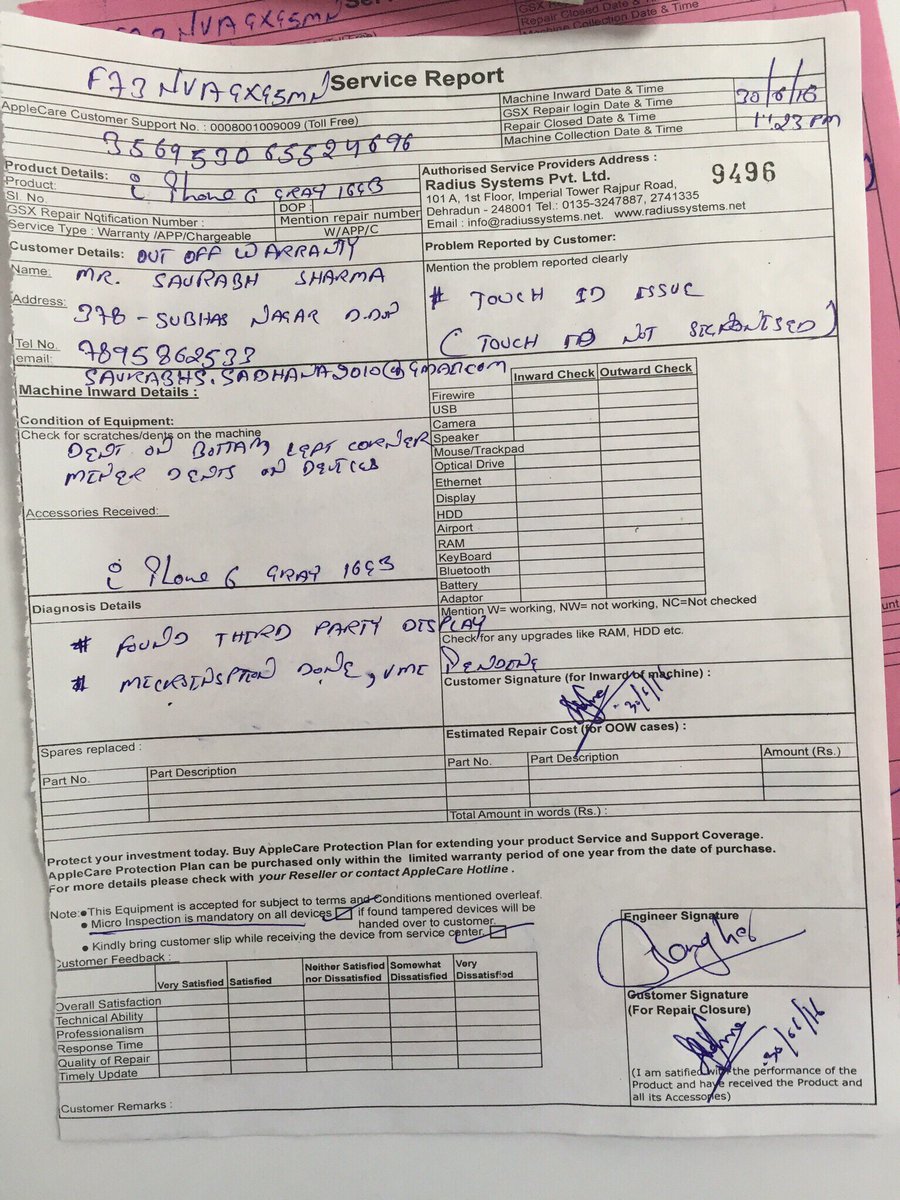 GSX Repair Closed Date &
Repair Closed Date & Time
Machine Collection Date & Time
F73NVAGXG5MN Service Report
AppleCare Customer Support No. : 0008001009009 (Toll Free)
Machine Inward Date & Time 30/6/16
GSX Repair login Date & Time
Repair Closed Date & Time 1:23 PM
Machine Collection Date & Time
356953065524696
Product Details:
Product: i Phone 6 GRAY 16GB
Sl. No. DOP :
GSX Repair Notification Number : Mention repair number
Service Type : Warranty /APP/Chargeable W/APP/C
Authorised Service Providers Address :
Radius Systems Pvt. Ltd. 9496
101 A, 1st Floor, Imperial Tower Rajpur Road,
Dehradun - 248001 Tel.: 0135-3247887, 2741335
Email : info@radiussystems.net. www.radiussystems.net
Customer Details: OUT OFF WARRANTY
Name: MR. SAURABH SHARMA
Address: 378 - SUBHAS NAGAR D.DN
Tel No. 7895862533
email: SAURABHS.SADHANA2010@GMAIL.COM
Problem Reported by Customer:
Mention the problem reported clearly
# TOUCH ID ISSUE
( TOUCH ID NOT )
Machine Inward Details :
Condition of Equipment:
Check for scratches/dents on the machine
DENT ON BOTTAM LEFT CORNER
MINER DENTS ON DEVICES
Accessories Received:
i Phone 6 GRAY 16GB
Inward Check Outward Check
Firewire
USB
Camera
Speaker
Mouse/Trackpad
Optical Drive
Ethernet
Display
HDD
Airport
RAM
KeyBoard
Bluetooth
Battery
Adaptor
Mention W= working, NW= not working, NC=Not checked
Diagnosis Details
# FOUND THIRD PARTY DISPLAY
# DONE, VMI PENDING
Check for any upgrades like RAM, HDD etc.
Customer Signature (for Inward of machine) :
30/6/16
Estimated Repair Cost (for OOW cases) :
Part No. Part Description Amount (Rs.)
Total Amount in words (Rs.) :
Spares replaced :
Part No. Part Description
Protect your investment today. Buy AppleCare Protection Plan for extending your product Service and Support Coverage.
AppleCare Protection Plan can be purchased only within the limited warranty period of one year from the date of purchase.
For more details please check with your Reseller or contact AppleCare Hotline .
Note:●This Equipment is accepted for subject to terms and Conditions mentioned overleaf.
● Micro Inspection is mandatory on all devices if found tampered devices will be
handed over to customer.
● Kindly bring customer slip while receiving the device from service center.
Customer Feedback :
Very Satisfied Satisfied Neither Satisfied nor Dissatisfied Somewhat Dissatisfied Very Dissatisfied
Overall Satisfaction
Technical Ability
Professionalism
Response Time
Quality of Repair
Timely Update
Customer Remarks :
Engineer Signature
Customer Signature
(For Repair Closure)
30/06/16
(I am satified with the performance of the
Product and have received the Product and
all its Accessories)